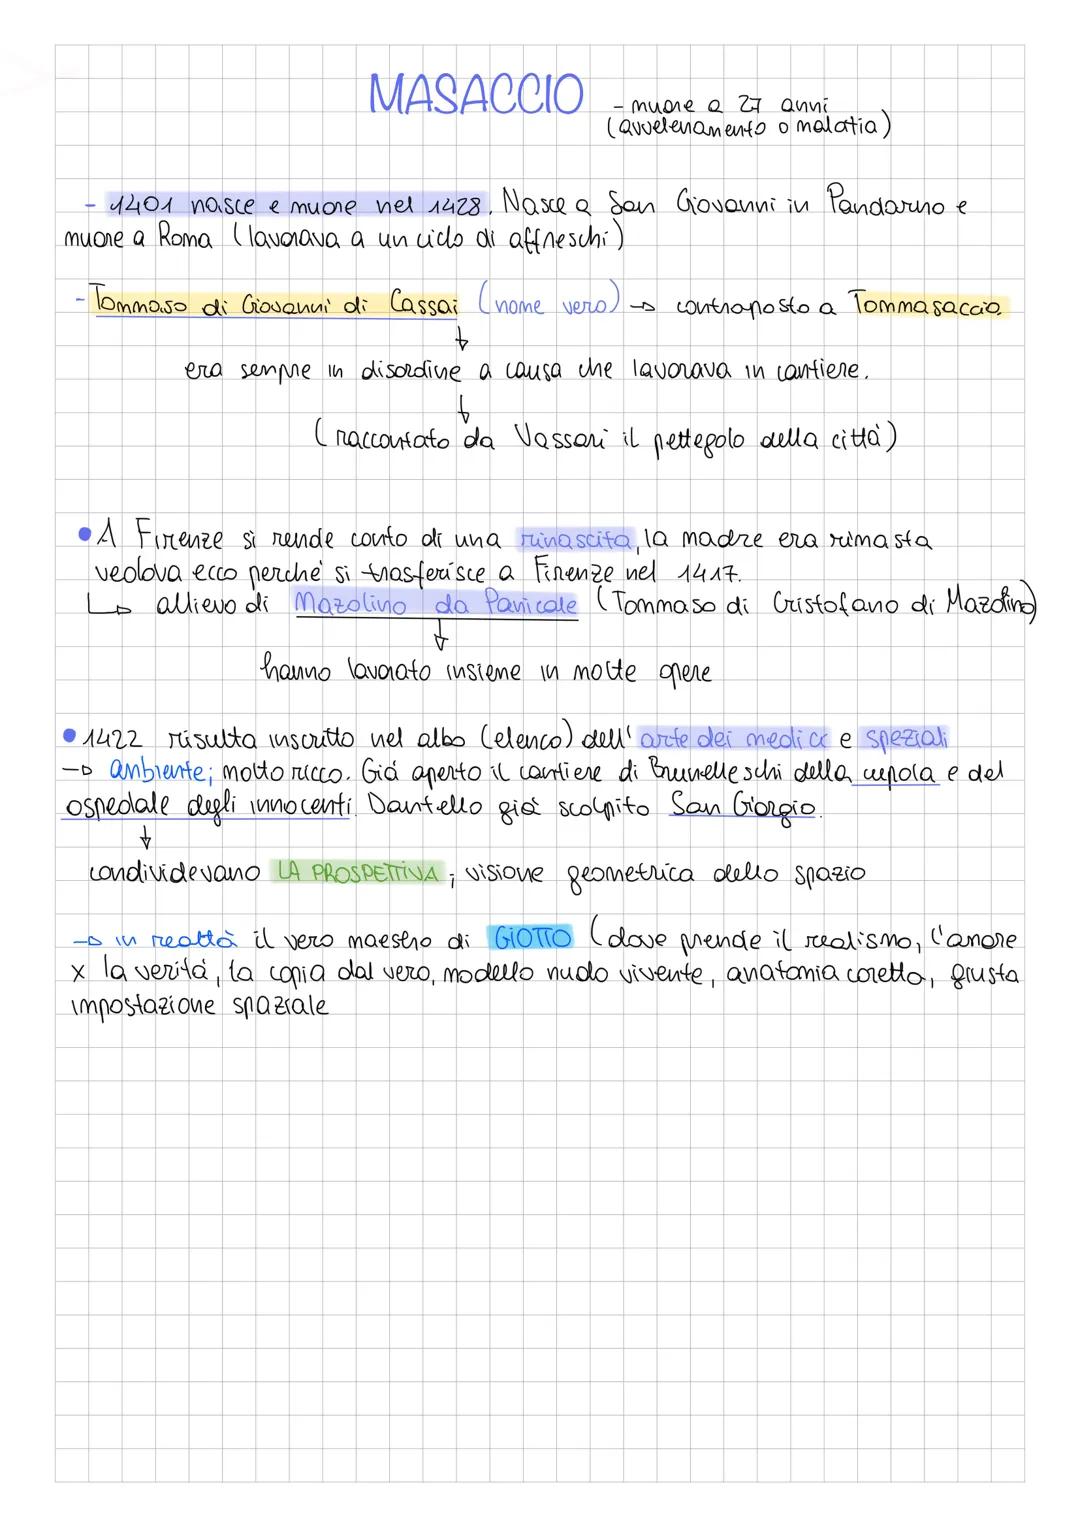 MASACCIO
- muore a 27 anni
(avvelenamento o malatia)
- 1401 nasce e muore nel 1428. Nasce a San Giovanni in Pandarno e
muore a Roma (lavorava a un ciclo di affreschi)
- Tommaso di Giovanni di Cassai (nome vero) → contrapposto a Tommasaccio.
↓
era sempre in disordine a causa che lavorava in cantiere.
↓
(raccontato da Vassari il pettegolo della città)
• A Firenze si rende conto di una rinascita, la madre era rimasta
vedova ecco perché si trasferisce a Firenze nel 1417.
↳ allievo di Mazolino da Panicale (Tommaso di Cristofano di Mazolino)
↓
hanno lavorato insieme in molte opere
• 1422 risulta inscritto nel albo (elenco) dell' arte dei medici e speziali
→ ambiente; molto ricco. Giá aperto il cantiere di Brunelleschi della cupola e del
ospedale degli innocenti. Dantello già scolpito San Giorgio.
↓
condividevano LA PROSPETTIVA; visione geometrica dello spazio
→ in realtà il vero maestro di GIOTTO (dove prende il realismo, l'amore
x la verità, la copia dal vero, modello nudo vivente, anatomia coretta, giusta
impostazione spaziale